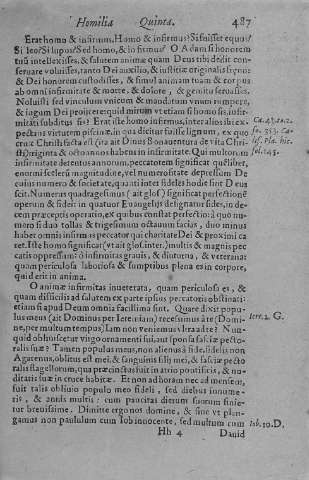 Homilia Quinta. 487
Erat homo & infirmus, Homo & infirmus? Si fuisset equus?
Si leo? Si lupus? Sed homo, & infirmus? O Adam si honorem
tuũ intellexisses, & salutem animæ quam Deus tibi dedit con-
seruare voluisses, tanto Dei auxilio, & iustitiæ originalis frẹno:
& Dei honorem custodisses, & simul animam tuam & corpus
ab omni infirmitate & morte, & dolore, & gemitu seruasses.
Noluisti sed vinculum vnicem & mandotum vnum rumpere,
& iugum Dei projicere: quid mirum vt etiam si homo sis, infir-
mitati subditus sis? Erat iste homo infirmus, inter alios ibi ex-
pectans virtutem piscinæ, in qua dicitur fuisse lignum, ex quo
crux Christi facta est (ita ait Diuus Bonauentura de vita Chri-
sti) triginta & octo annos habens in infirmitate. Qui multorum
infirmitate detentos annorum, peccatorem significat qui liber,
enormi scelerũ magnitudine, vel numerositate depressum De
cuius numero & societate, quanti inter fideles hodie sint Deus
scit. Numerus quadragesimus (ait glos) significat perfectionẽ
operum & fidei: in quatuor Euangelijs designatur fides, in de-
cem præceptis operatio, ex quibus constat perfectio: à quo nu-
mero si duo tollas & trigesimum octauum facias, duo minus
habet omnis infirmus peccator qui charitate Dei & proximi ca
ret. Iste homo significat (vt ait glos. inter.) multis & magnis pec
catis oppressum: ô infirmitas grauis, & diuturna, & veterana:
quam periculosa laboriosa & sumptibus plena es in corpore,
quid erit in anima.
O animæ infirmitas inueterata, quam periculosa es, &
quam difficilis ad salutem ex parte ipsius peccatoris obstinati:
etiam si apud Deum omnia facillima sint. Quare dixit popu-
lus meus (ait Dominus per Ieremiam) recessimus à te (Domi-
ne, per multum tempus) Iam non veniemus vltra ad te? Nun-
quid obliuiscetur virgo ornamenti sui, aut sponsa fasciæ pecto-
ralis suæ? Tamen populus meus, non alienus à fide, fidelis non
Agarenus, oblitus est mei: & sanguinis filij mei, & fasciæ pecto
ralis flagellorum, qua præcinctus fuit in atrio pontificis, & nu-
ditatis suæ in cruce habitæ. Et non ad horam nec ad mensem,
fuit talis obliuio populo meo fideli, sed diebus innume-
ris, & annis multis: cum paucitas dierum suorum finie-
tur breuissime. Dimitte ergo nos domine, & sine vt plan-
gamus non paululum cum Iob innocente, sed multum cum
Hh 4 Dauid
Iere. 2. G.
Iob. 10. D.